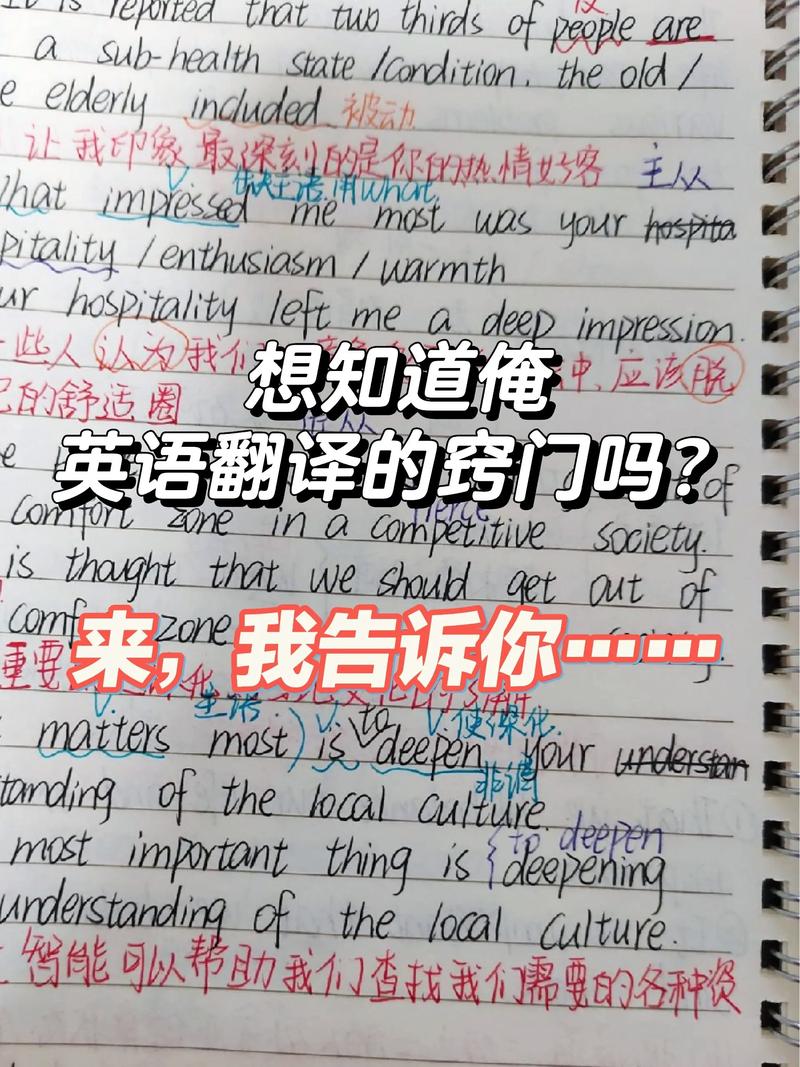 is reported that two thirds of people are
a sub-health state /condition. the old /
e elderly included 被动
让我印象最深刻的是你的热情好客 主从
缺主语用what
What impressed me most was your hospita
pitality /enthusiasm / warmth
ur hospitality left me a deep impression.
一些人认为我们 中,应该脱
己的舒适圈
想知道俺
英语翻译的窍门吗?
of
fierce
comfort zone in a competitive society.
is thought that we should get out of
comf zone
来,我告诉你……
重要
V. 主语 V. to V.使深化
matters most) is deepen your understan
非谓
tanding of the local culture.
{to deepen
most important thing is deepening
understanding of the local culture.
智能可以帮助我们查找我们需要的各种资